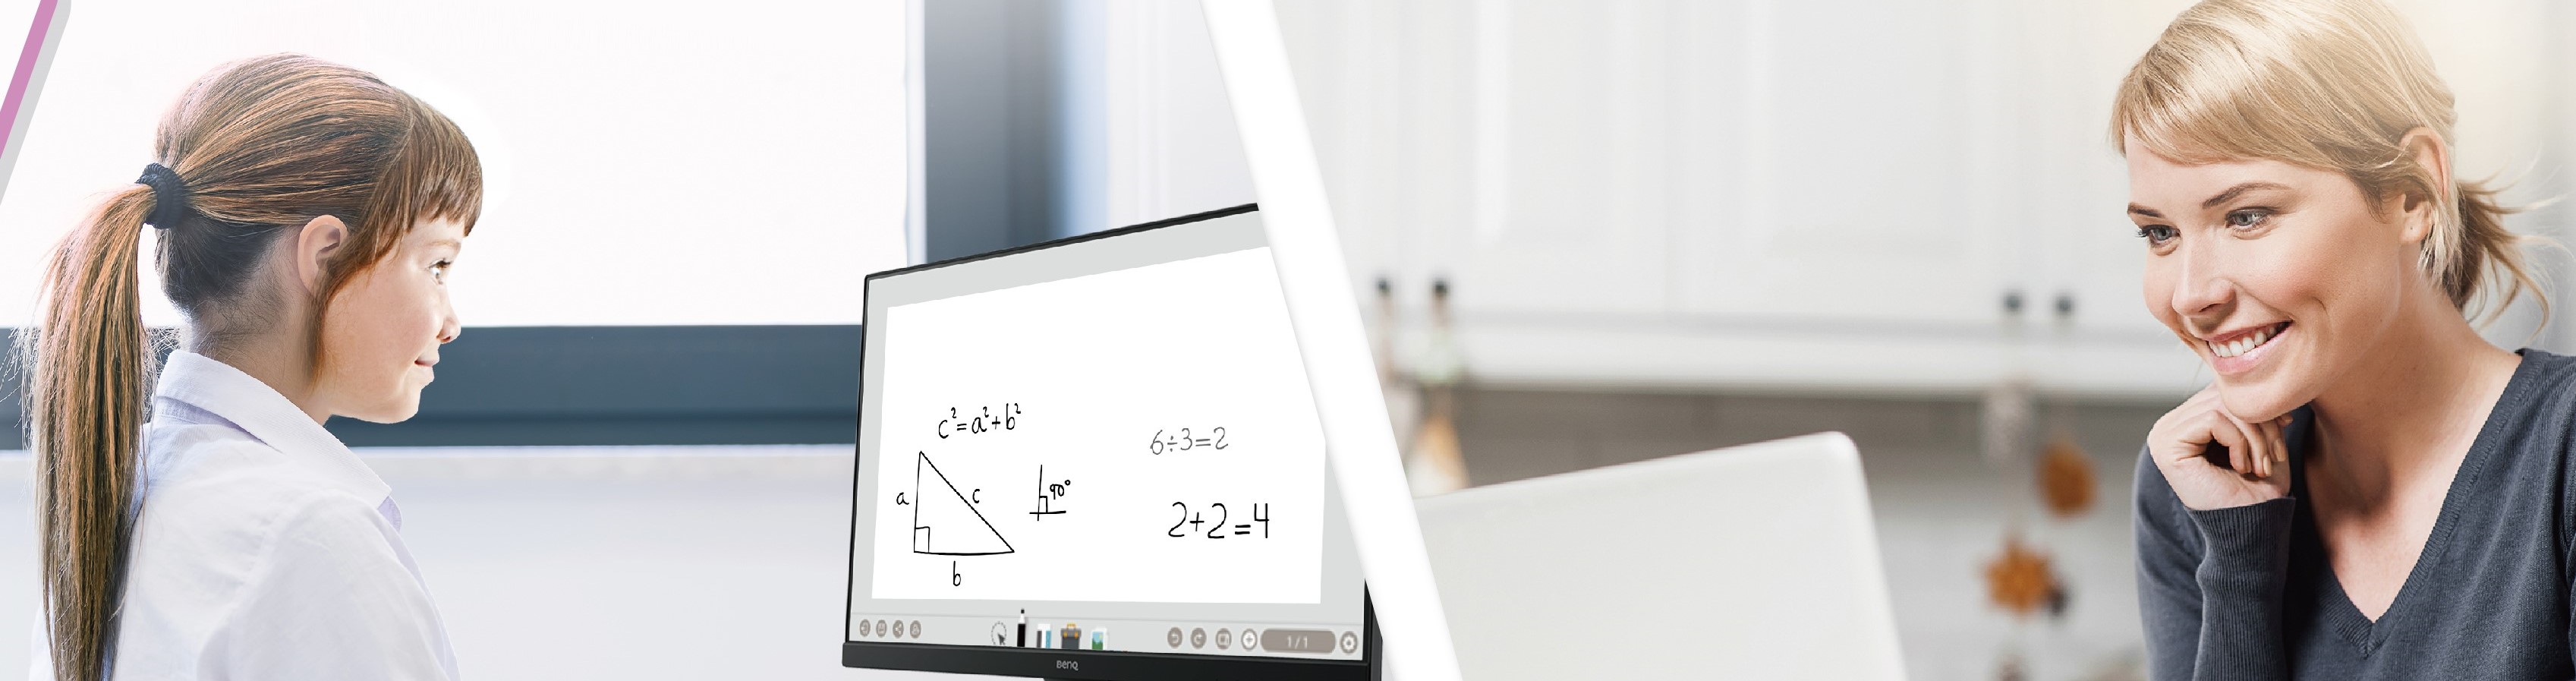 c²=a²+b²
a
c
b
90°
6÷3=2
2+2=4
1/1
BenQ